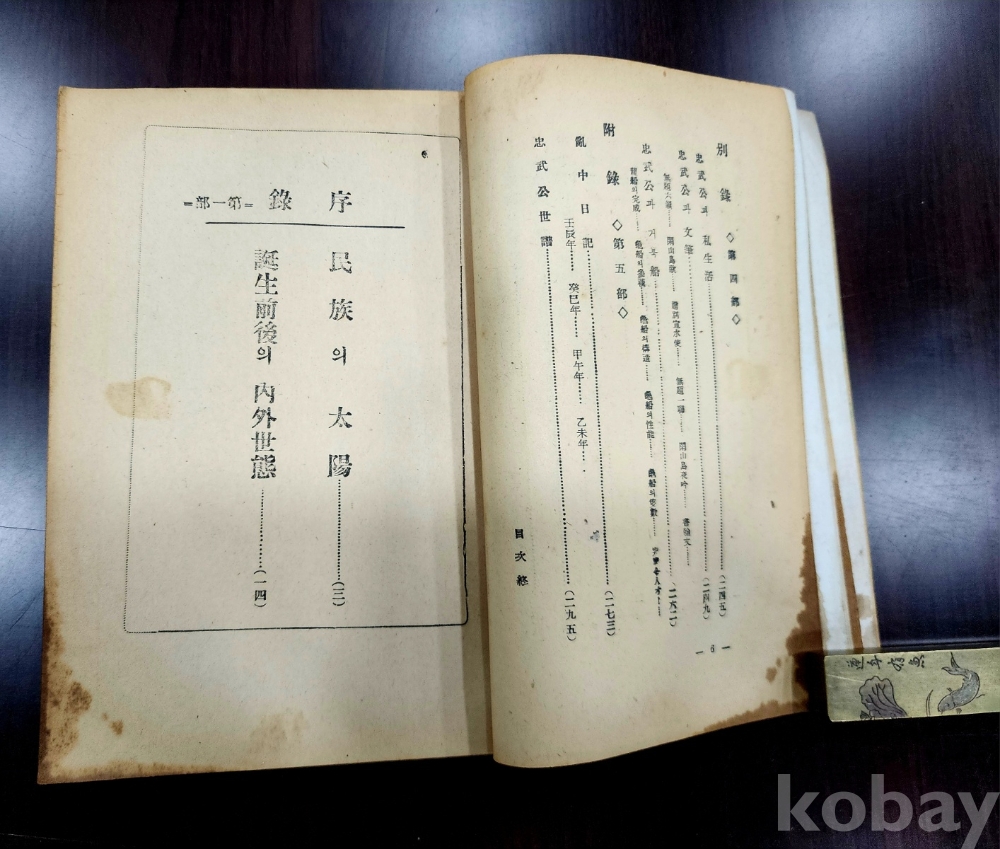 別錄 ◇第四部◇
忠武公과 私生活……(二四五)
忠武公과 文筆……(二四九)
無題六韻…… 閑山島歌…… 無題一聯…… 閑山島夜吟……
忠武公과 거북船……(二六二)
龜船의 構造…… 龜船의 性能……
附錄 ◇第五部◇
亂中日記……(二七三)
壬辰年…… 癸巳年…… 甲午年…… 乙未年……
忠武公世譜……(二九五)
目次終
— 6 —
序錄 =第一部=
民族의 太陽……(三)
誕生前後의 內外世態……(一四)
連年有魚
kobay